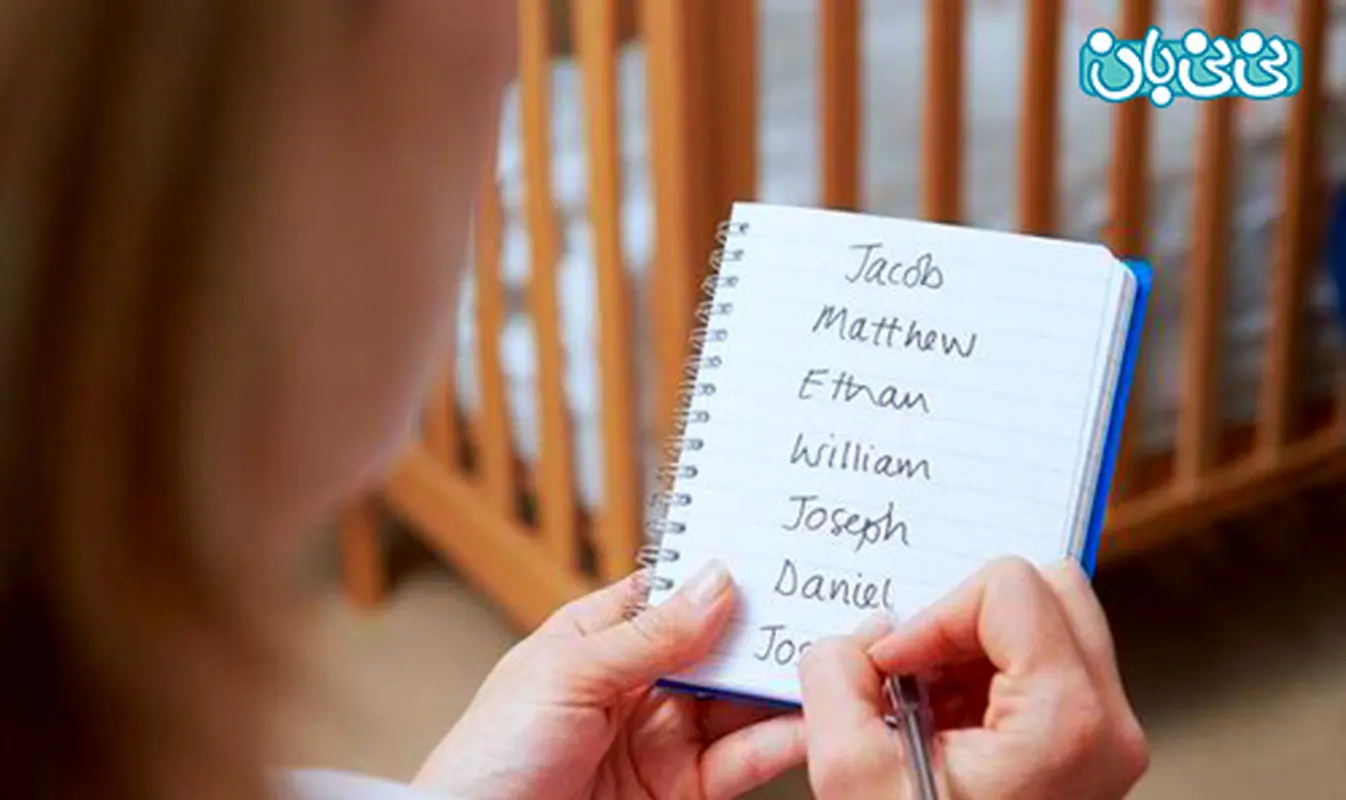 نی‌نی‌بان
Jacob
Matthew
Ethan
William
Joseph
Daniel